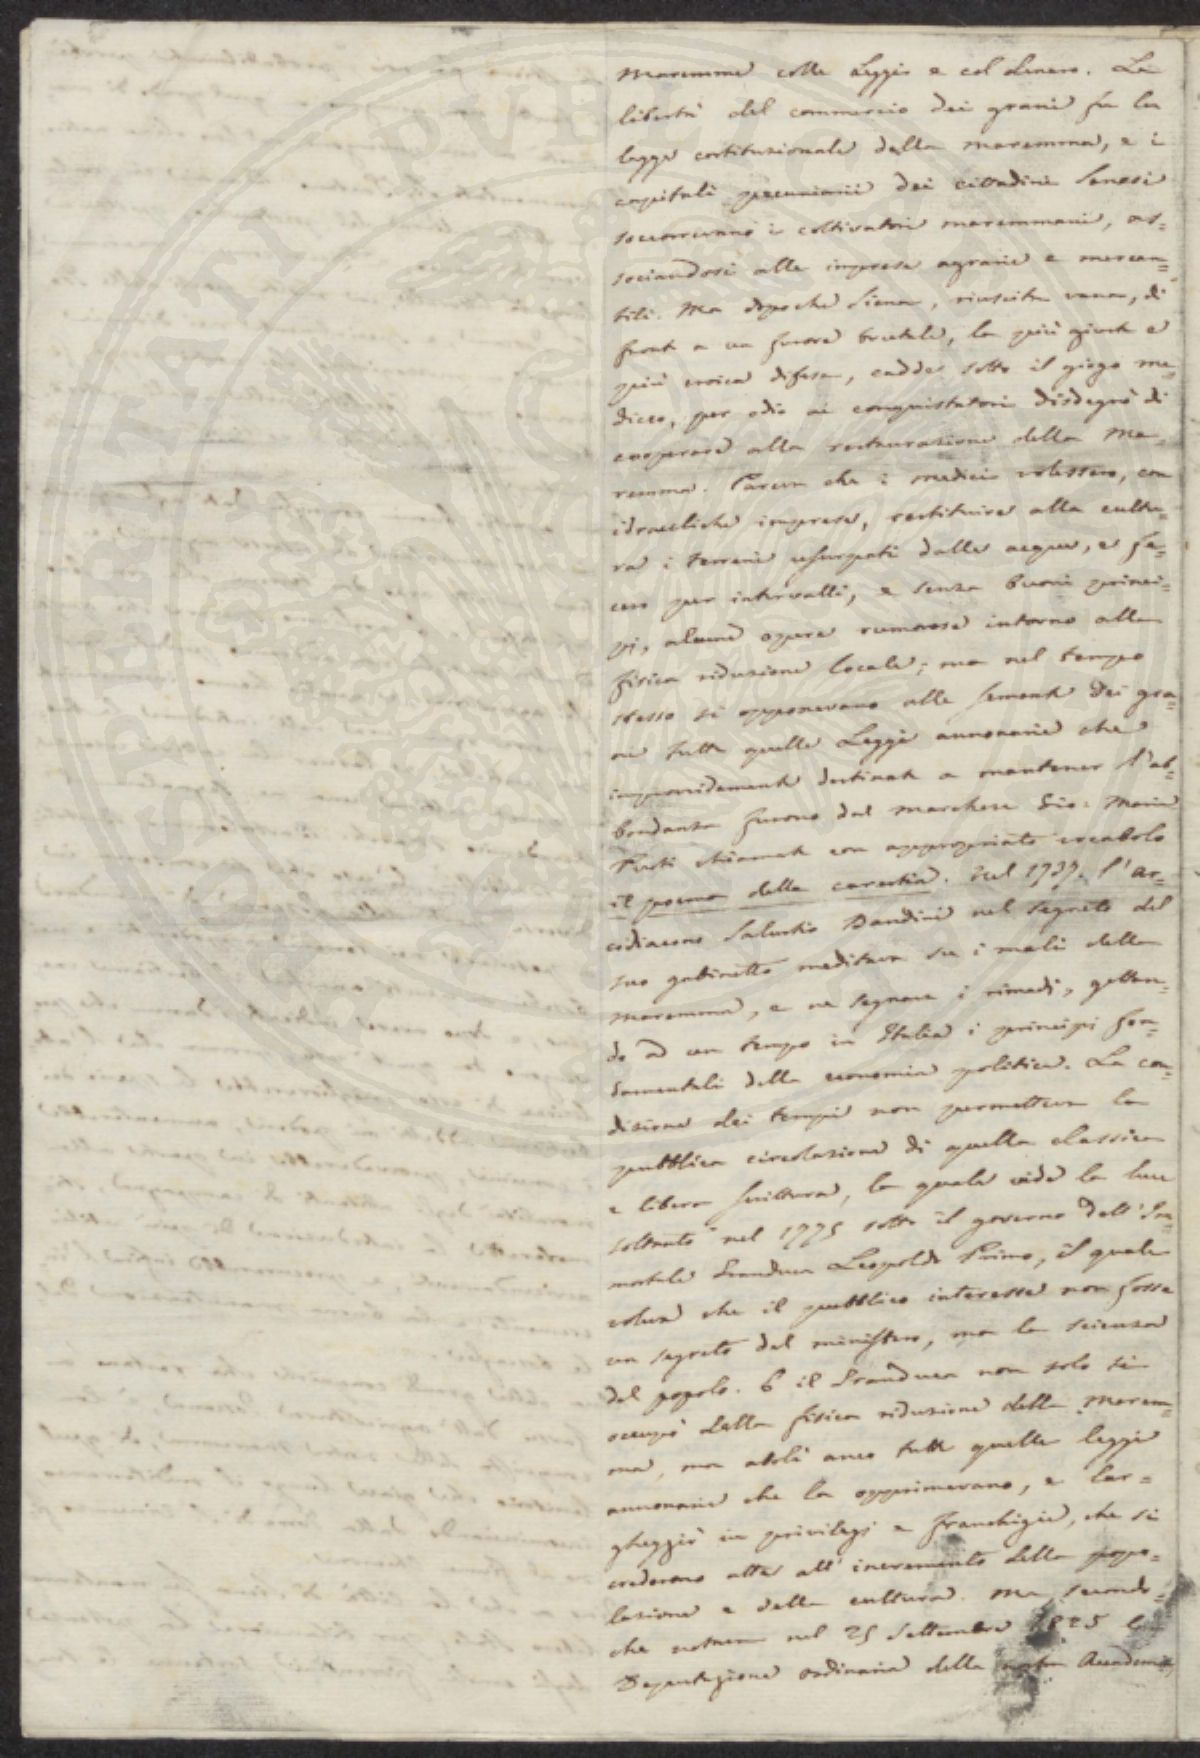 Maremme colle Leggi e col denaro. La
libertà del commercio dei grani fu la
legge costituzionale della maremma, e i
capitali pecuniarii dei cittadini Senesi
soccorrevano i coltivatori maremmani, as=
sociandosi alle imprese agrarie e mercan=
tili. Ma dopo che Siena, riuscita vana, di
fronte a un furore brutale, la più giusta e
più eroica difesa, cadde sotto il giogo me=
diceo, per odio ai conquistatori disdegnò di
cooperare alla restaurazione della Ma=
remma. Pareva che i medici volessero, con
idrauliche imprese, restituire alla cultu=
ra i terreni usurpati dalle acque, e fe=
cero per intervalli, e senza buoni princi=
pi, alcune opere rumorose intorno alla
fisica riduzione locale; ma nel tempo
stesso si opponevano alle sementi dei gra=
ni tutte quelle Leggi annonarie che
improvvidamente destinate a mantener l'ab=
bondanza furono dal marchese Gio: Maria
chiamate con appropriato vocabolo
il poema della carestia. Nel 1737. l'Ar=
cidiacono Salustio Bandini nel segreto del
suo gabinetto meditava su i mali della
maremma, e ne segnava i rimedi, gettan=
do ad un tempo in Italia i principi fon=
damentali della economia politica. La con=
dizione dei tempi non permetteva la
pubblica circolazione di quella classica
e libera scrittura, la quale vide la luce
soltanto nel 1775 sotto il governo dell'Im=
mortale Granduca Leopoldo Primo, il quale
voleva che il pubblico interesse non fosse
un segreto del ministero, ma la scienza
del popolo. E il Granduca non solo si
occupò della fisica riduzione della Marem=
ma, ma abolì anco tutte quelle leggi
annonarie che la opprimevano, e lar=
gheggiò in privilegj e franchigie, che si
crederono atte all'incremento della popo=
lazione e della cultura. Ma, secondo=
che notava nel 25 Settembre 1825 la
Deputazione ordinaria della nostra Accademia
SENATI PVBLICA